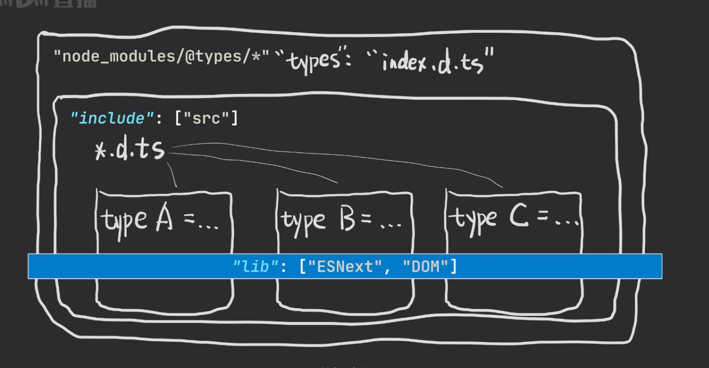 直播
"node_modules/@types/*" "types": "index.d.ts"
"include": ["src"]
*.d.ts
type A =... type B =... type C =...
"lib": ["ESNext", "DOM"]